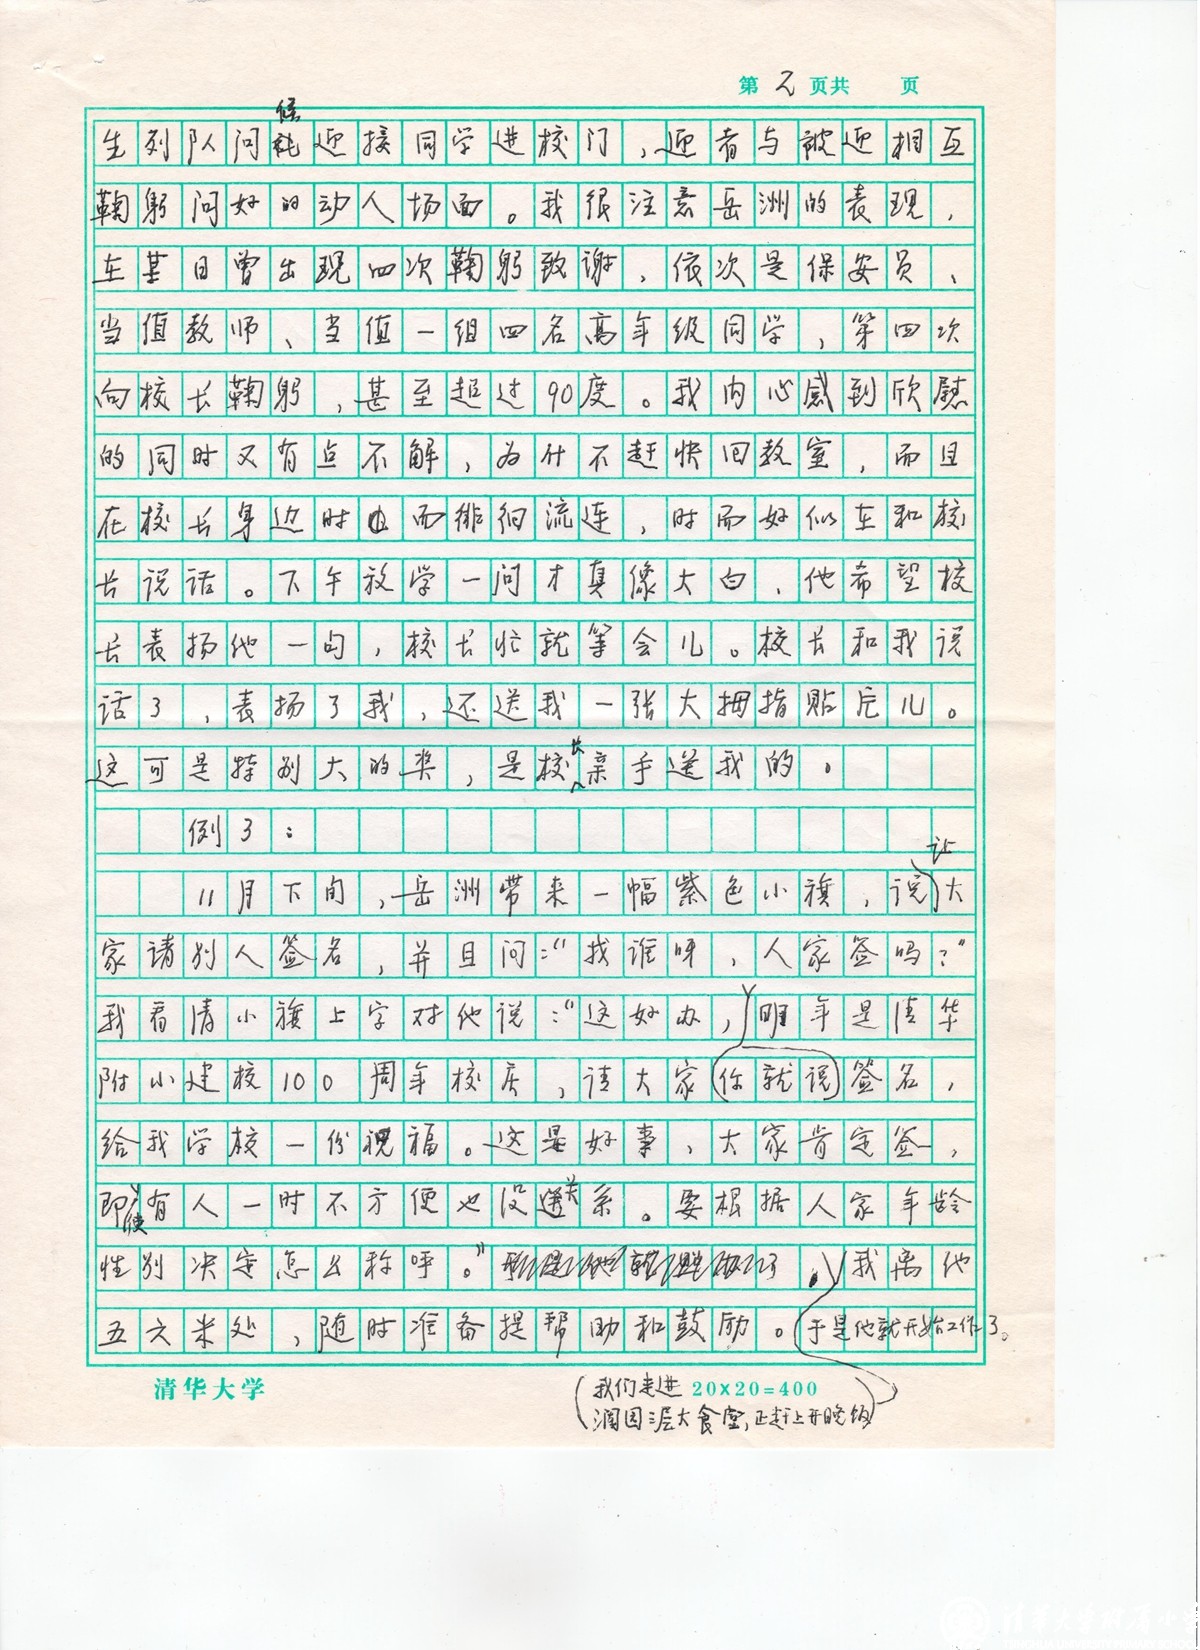 第 2 页共 页
生列队问候迎接同学进校门，迎者与被迎相互
鞠躬问好的动人场面。我很注意岳洲的表现，
在某日曾出现四次鞠躬致谢，依次是保安员、
当值教师、当值一组四名高年级同学，第四次
向校长鞠躬，甚至超过90度。我内心感到欣慰
的同时又有点不解，为什不赶快回教室，而且
在校长身边时而徘徊流连，时而好似在和校
长说话。下午放学一问才真像大白，他希望校
长表扬他一句，校长忙就等会儿。校长和我说
话了，表扬了我，还送我一张大拇指贴片儿。
这可是特别大的奖，是校长亲手送我的。
例3：
11月下旬，岳洲带来一幅紫色小旗，说让大
家请别人签名，并且问：“找谁呀，人家签吗？”
我看清小旗上字对他说：“这好办，明年是清华
附小建校100周年校庆，请大家你就说签名，
给我学校一份祝福。这是好事，大家肯定签，
即使有人一时不方便也没关系。要根据人家年龄
性别决定怎么称呼。”我离他
五六米处，随时准备提帮助和鼓励。于是他就开始工作了。
清华大学
（我们走进 20×20=400
澜园三层大食堂，正赶上开晚饭）
清华大学附属小学